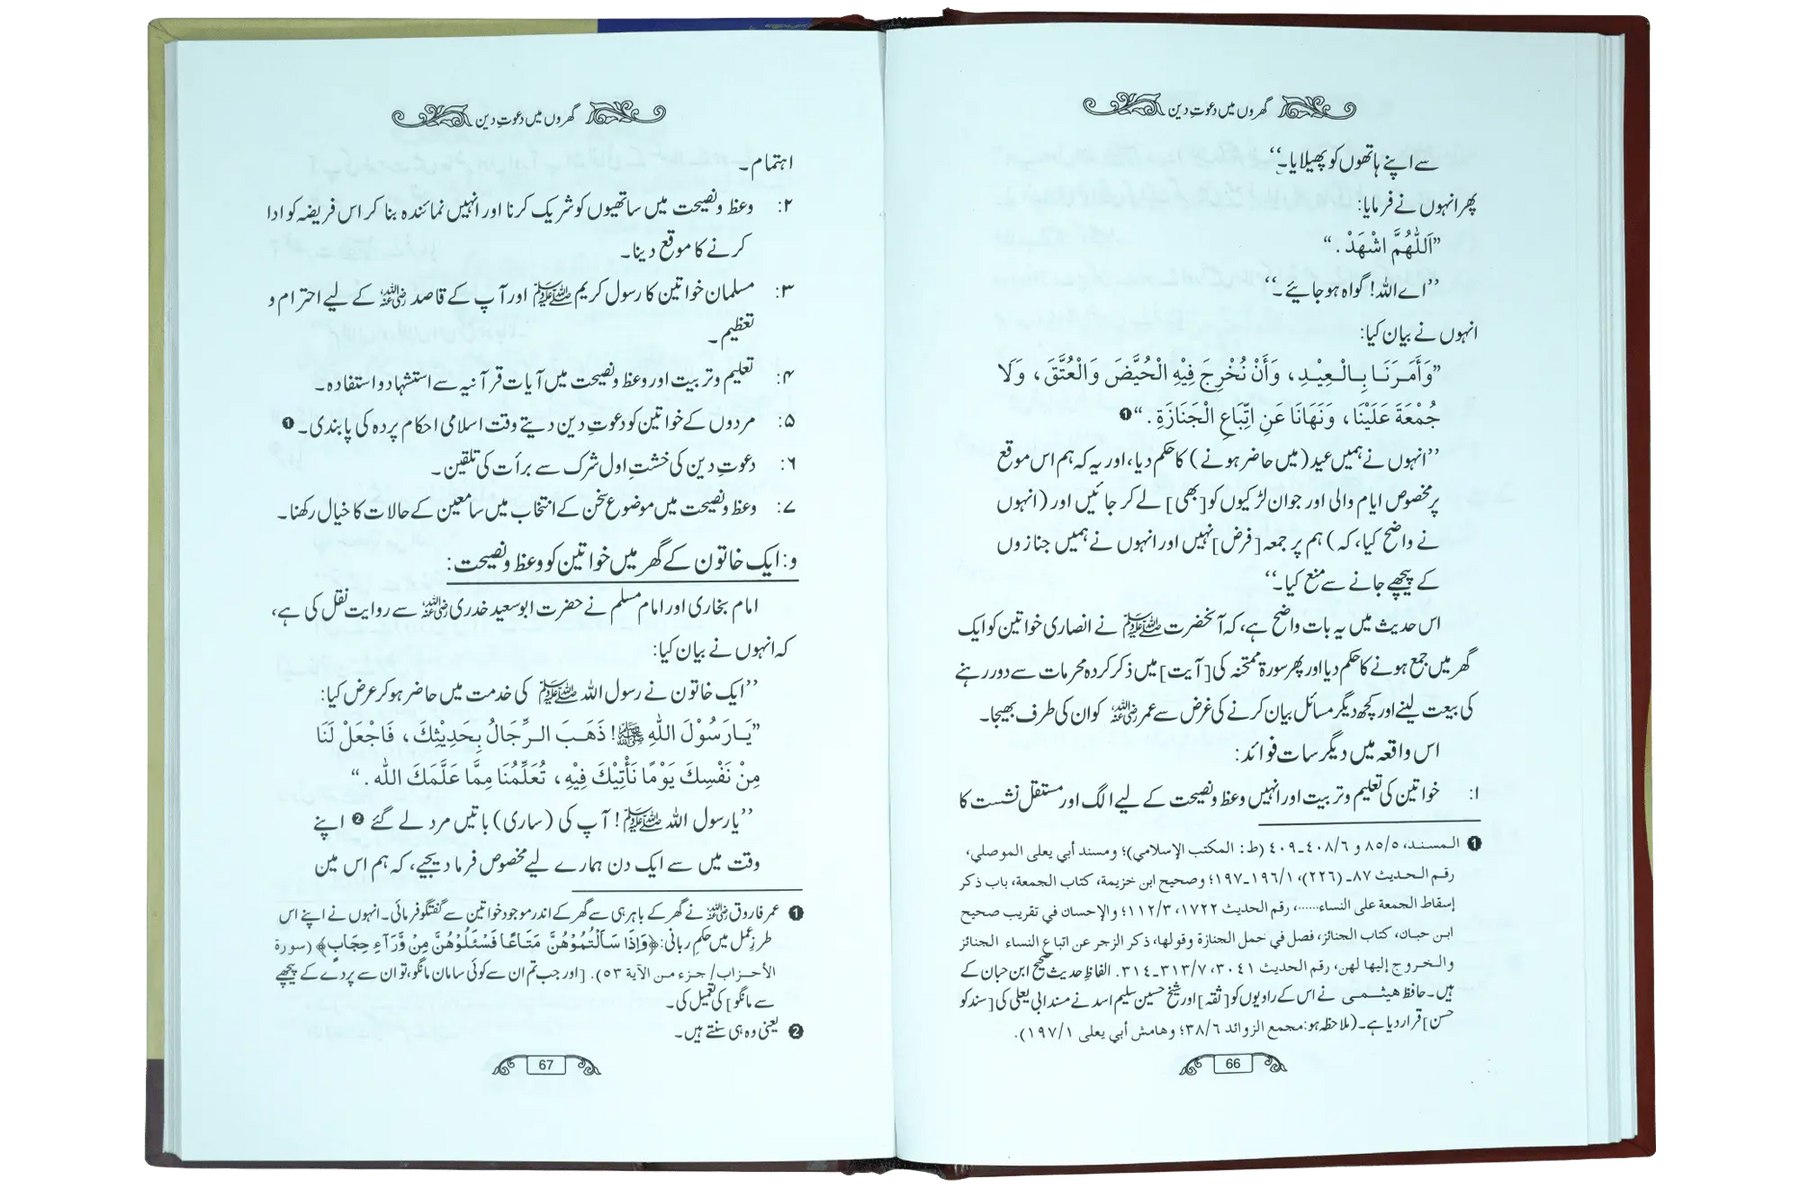 گھروں میں دعوتِ دین
سے اپنے ہاتھوں کو پھیلایا۔‘‘
پھر انہوں نے فرمایا:
”اَللّٰهُمَّ اشْهَدْ.“
’’اے اللہ! گواہ ہو جائیے۔‘‘
انہوں نے بیان کیا:
”وَأَمَرَنَا بِالْعِيْدِ، وَأَنْ نُخْرِجَ فِيْهِ الْحُيَّضَ وَالْعُتَّقَ، وَلَا
جُمْعَةَ عَلَيْنَا، وَنَهَانَا عَنِ اتِّبَاعِ الْجَنَازَةِ.“❶
’’انہوں نے ہمیں عید (میں حاضر ہونے) کا حکم دیا، اور یہ کہ ہم اس موقع
پر مخصوص ایام والی اور جوان لڑکیوں کو [بھی] لے کر جائیں اور (انہوں
نے واضح کیا، کہ) ہم پر جمعہ [فرض] نہیں اور انہوں نے ہمیں جنازوں
کے پیچھے جانے سے منع کیا۔‘‘
اس حدیث میں یہ بات واضح ہے، کہ آنحضرت ﷺ نے انصاری خواتین کو ایک
گھر میں جمع ہونے کا حکم دیا اور پھر سورۃ ممتحنہ کی [آیت] میں ذکر کردہ محرمات سے دور رہنے
کی بیعت لینے اور کچھ دیگر مسائل بیان کرنے کی غرض سے عمر رضی اللہ عنہ کو ان کی طرف بھیجا۔
اس واقعہ میں دیگر سات فوائد:
۱: خواتین کی تعلیم و تربیت اور انہیں وعظ و نصیحت کے لیے الگ اور مستقل نشست کا
❶ المسند، ٨٥/٥ و ٤٠٨/٦-٤٠٩ (ط: المكتب الإسلامي)؛ ومسند أبي يعلى الموصلي،
رقم الحديث ٨٧ـ (٢٢٦)، ١٩٦/١-١٩٧؛ وصحيح ابن خزيمة، كتاب الجمعة، باب ذكر
إسقاط الجمعة على النساء......، رقم الحديث ١٧٢٢، ١١٢/٣؛ والإحسان في تقريب صحيح
ابن حبان، كتاب الجنائز، فصل في حمل الجنازة وقولها، ذكر الزجر عن اتباع النساء الجنائز
والخروج إليها لهن، رقم الحديث ٣٠٤١، ٣١٣/٧-٣١٤. الفاظِ حدیث صحیح ابن حبان کے
ہیں۔ حافظ ھیثمی نے اس کے راویوں کو [ثقہ] اور شیخ حسین سلیم اسد نے مسند ابی یعلی کی [سند کو
حسن] قرار دیا ہے۔ (ملاحظہ ہو: مجمع الزوائد ٣٨/٦؛ وهامش أبي يعلى ١٩٧/١).
66
گھروں میں دعوتِ دین
اہتمام۔
۲: وعظ و نصیحت میں ساتھیوں کو شریک کرنا اور انہیں نمائندہ بنا کر اس فریضہ کو ادا
کرنے کا موقع دینا۔
۳: مسلمان خواتین کا رسول کریم ﷺ اور آپ کے قاصد رضی اللہ عنہ کے لیے احترام و
تعظیم۔
۴: تعلیم و تربیت اور وعظ و نصیحت میں آیات قرآنیہ سے استشہاد و استفادہ۔
۵: مردوں کے خواتین کو دعوتِ دین دیتے وقت اسلامی احکام پردہ کی پابندی۔❶
۶: دعوتِ دین کی خشتِ اول شرک سے برأت کی تلقین۔
۷: وعظ و نصیحت میں موضوع سخن کے انتخاب میں سامعین کے حالات کا خیال رکھنا۔
و: ایک خاتون کے گھر میں خواتین کو وعظ و نصیحت:
امام بخاری اور امام مسلم نے حضرت ابو سعید خدری رضی اللہ عنہ سے روایت نقل کی ہے،
کہ انہوں نے بیان کیا:
’’ایک خاتون نے رسول اللہ ﷺ کی خدمت میں حاضر ہو کر عرض کیا:
”يَارَسُوْلَ اللهِ ﷺ! ذَهَبَ الرِّجَالُ بِحَدِيْثِكَ، فَاجْعَلْ لَنَا
مِنْ نَفْسِكَ يَوْمًا نَأْتِيْكَ فِيْهِ، تُعَلِّمُنَا مِمَّا عَلَّمَكَ الله.“
’’یا رسول اللہ ﷺ! آپ کی (ساری) باتیں مرد لے گئے ❷ اپنے
وقت میں سے ایک دن ہمارے لیے مخصوص فرما دیجیے، کہ ہم اس مین
❶ عمر فاروق رضی اللہ عنہ نے گھر کے باہر ہی سے گھر کے اندر موجود خواتین سے گفتگو فرمائی۔ انہوں نے اپنے اس
طرزِ عمل میں حکمِ ربانی: ﴿وَإِذَا سَأَلْتُمُوْهُنَّ مَتَاعًا فَسْئَلُوْهُنَّ مِنْ وَّرَآءِ حِجَابٍ﴾ (سورة
الأحزاب/ جزء من الآية ٥٣). [اور جب تم ان سے کوئی سامان مانگو، تو ان سے پردے کے پیچھے
سے مانگو] کی تعمیل کی۔
❷ یعنی وہ ہی سنتے ہیں۔
67